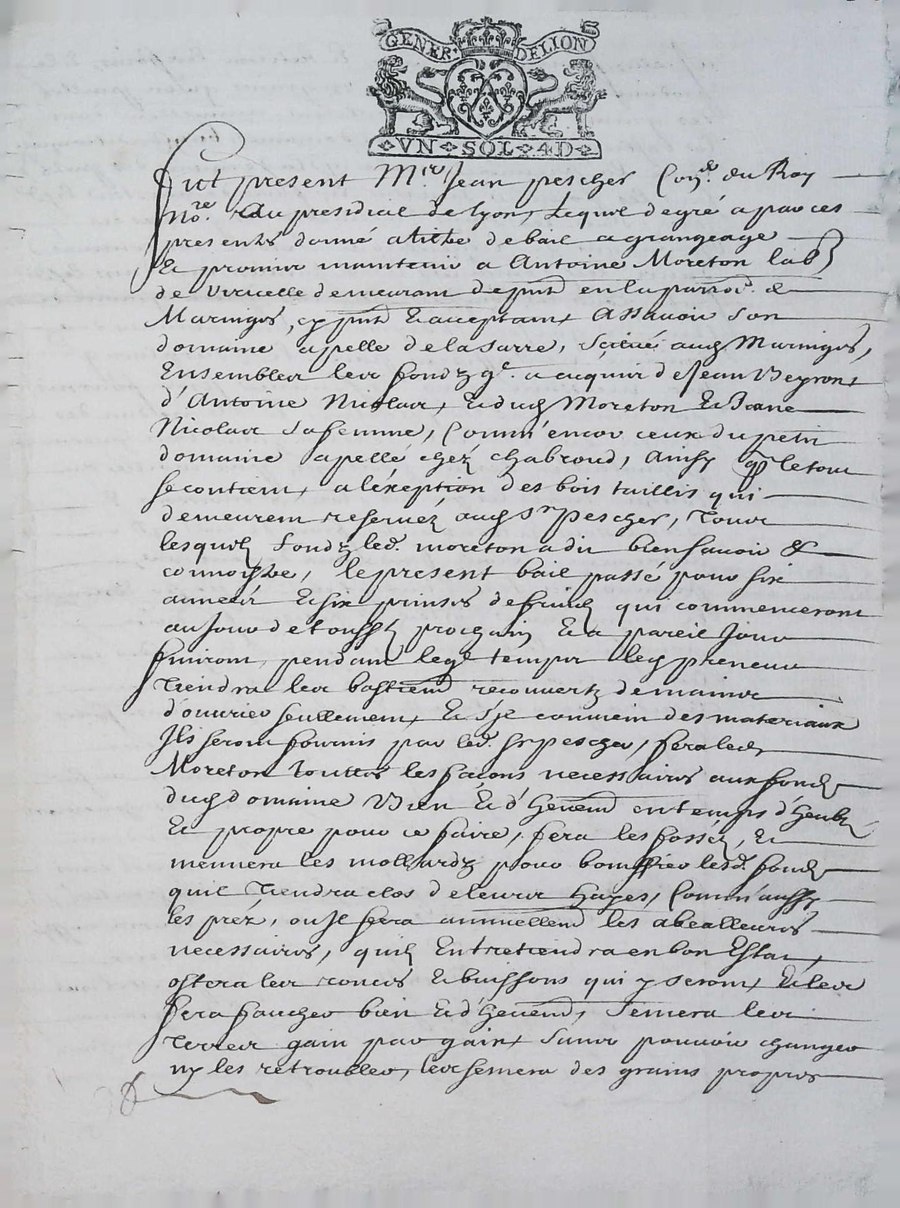 GENER · DELION
VN SOL 4D
Fut present Mre Jean pescher Coner du Roy
nore au presidial de lyon, Lequel de gré a par ces
presentes donné a tiltre de bail a grangeage
Et promis maintenir a Antoine Moreton lab
de demeurant de pnt en la parroe de
Maringes, cy pnt et acceptant Assavoir Son
domaine apelle de la Sarre, Scitué aud Maringes,
Ensemble les fondz qe a acquis de Jean Beyron
d'Antoine Nicolas, et dud Moreton Et Jeane
Nicolas Sa femme, Comm'encor ceux du petit
domaine apellé chez chabroud, Ainsy qe le tout
se contient, a l'exeption des bois taillis qui
demeurent reservez aud Sr Pescher, Tous
lesquels fondz led. moreton a dit bien savoir &
connoistre, le present bail passé pour six
années Et six prinses de fruicts qui commenceront
au jour de toussts prochain Et a pareil Jour
finiront, pendant leql temps led preneur
Tiendra les bastimens recouvertz de mains
d'ouvrier seullement, Et s'je convient des materiaux
Ils seront fournis par led. Sr pescher, fera led
Moreton Touttes les façons necessaires aux fonds
dud domaine Bien Et d'heuemt en temps d'heub
Et propre pour ce faire, fera les fossez, Et
mennera les mollardz pour bonniffier lesd. fonds
quil Tiendra clos de leurs hayes, Comm'aussy
les préz, ou Il fera annuellemt les abealleures
necessaires, quil Entretiendra en bon Estat,
ostera les ronces Et buissons qui y seront, Et les
fera faucher bien Et d'heuemt, Semera les
Terres gain par gain, Sans pouvoir changer
ny les retroubler, les semera des grains propres